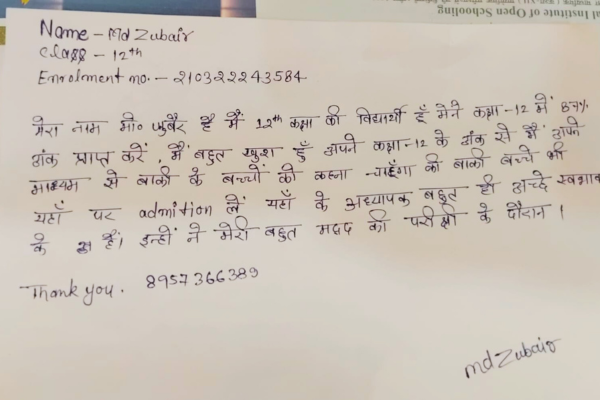 al Institute of Open Schooling
Name - Md Zubair
Class - 12th
Enrolment no. - 2103222243584
मेरा नाम मो० जुबैर है मैं 12th कक्षा की विद्यार्थी हूँ मेने कक्षा-12 में 87%
अंक प्राप्त करें, मैं बहुत खुश हूँ अपने कक्षा-12 के अंक से मैं अपने
माध्यम से बाकी के बच्चों को कहना चाहूँगा की बाकी बच्चे भी
यहाँ पर admition लें यहाँ के अध्यापक बहुत ही अच्छे स्वभाव
के हैं। इन्होंने मेरी बहुत मदद की परीक्षा के दौरान।
Thank you. 8957366389
Md Zubair